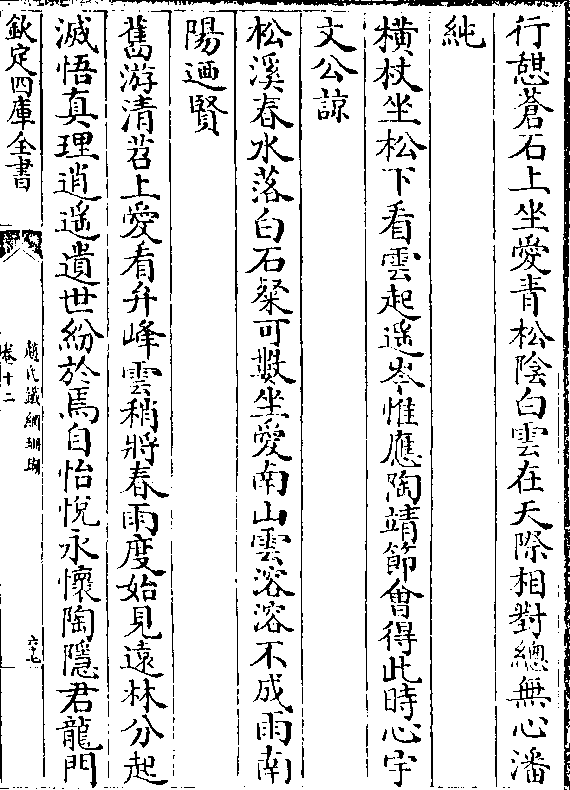 行憇蒼石上坐愛青松陰白雲在天際相對總無心潘
純
横杖坐松下看雲起遥岑惟應陶靖節會得此時心宇
文公諒
松溪春水落白石粲可數坐愛南山雲溶溶不成雨南
陽迺賢
舊游清苕上愛看弁峰雲稍將春雨度始見遠林分起
滅悟真理逍遥遺世紛於焉自怡悦永懷陶隱君龍門
欽定四庫全書
趙氏鐵網珊瑚
卷十二
六十七